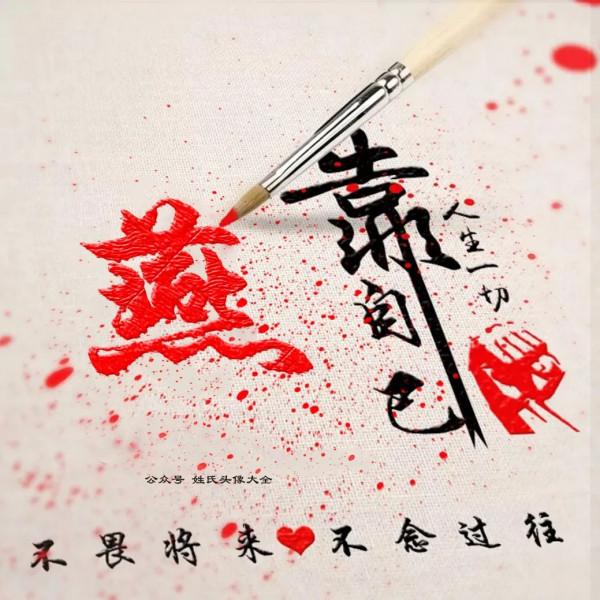 燕
靠自己
人生一切
公众号 姓氏头像大全
不畏将来❤不念过往